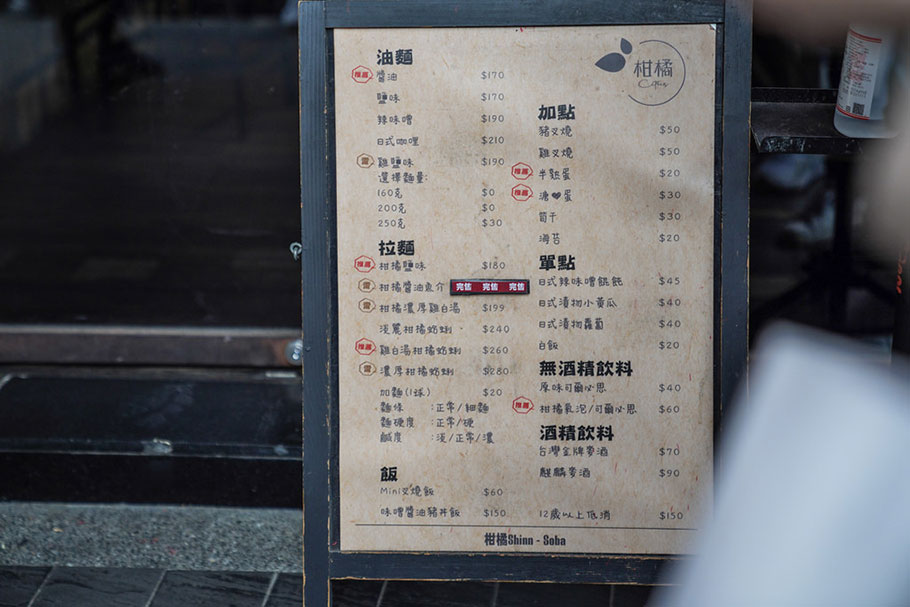 油麵
推薦 醬油 $170
鹽味 $170
辣味噌 $190
日式咖哩 $210
雷 雞鹽味 $190
選擇麵量:
160克 $0
200克 $0
250克 $30
拉麵
推薦 柑橘鹽味 $180
雷 柑橘醬油魚介 完售 完售 完售
雷 柑橘濃厚雞白湯 $199
淡麗柑橘蛤蜊 $240
推薦 雞白湯柑橘蛤蜊 $260
雷 濃厚柑橘蛤蜊 $280
加麵(1球) $20
麵條 :正常/細麵
麵硬度 :正常/硬
鹹度 :淡/正常/濃
飯
Mini叉燒飯 $60
味噌醬油豬丼飯 $150
柑橘
Coffee
加點
豬叉燒 $50
雞叉燒 $50
推薦 半熟蛋 $20
推薦 溏❤蛋 $30
筍干 $30
海苔 $20
單點
日式辣味噌餛飩 $45
日式漬物小黃瓜 $40
日式漬物蘿蔔 $40
白飯 $20
無酒精飲料
原味可爾必思 $40
推薦 柑橘氣泡/可爾必思 $60
酒精飲料
台灣金牌麥酒 $70
麒麟麥酒 $90
12歲以上低消 $150
柑橘Shinn - Soba